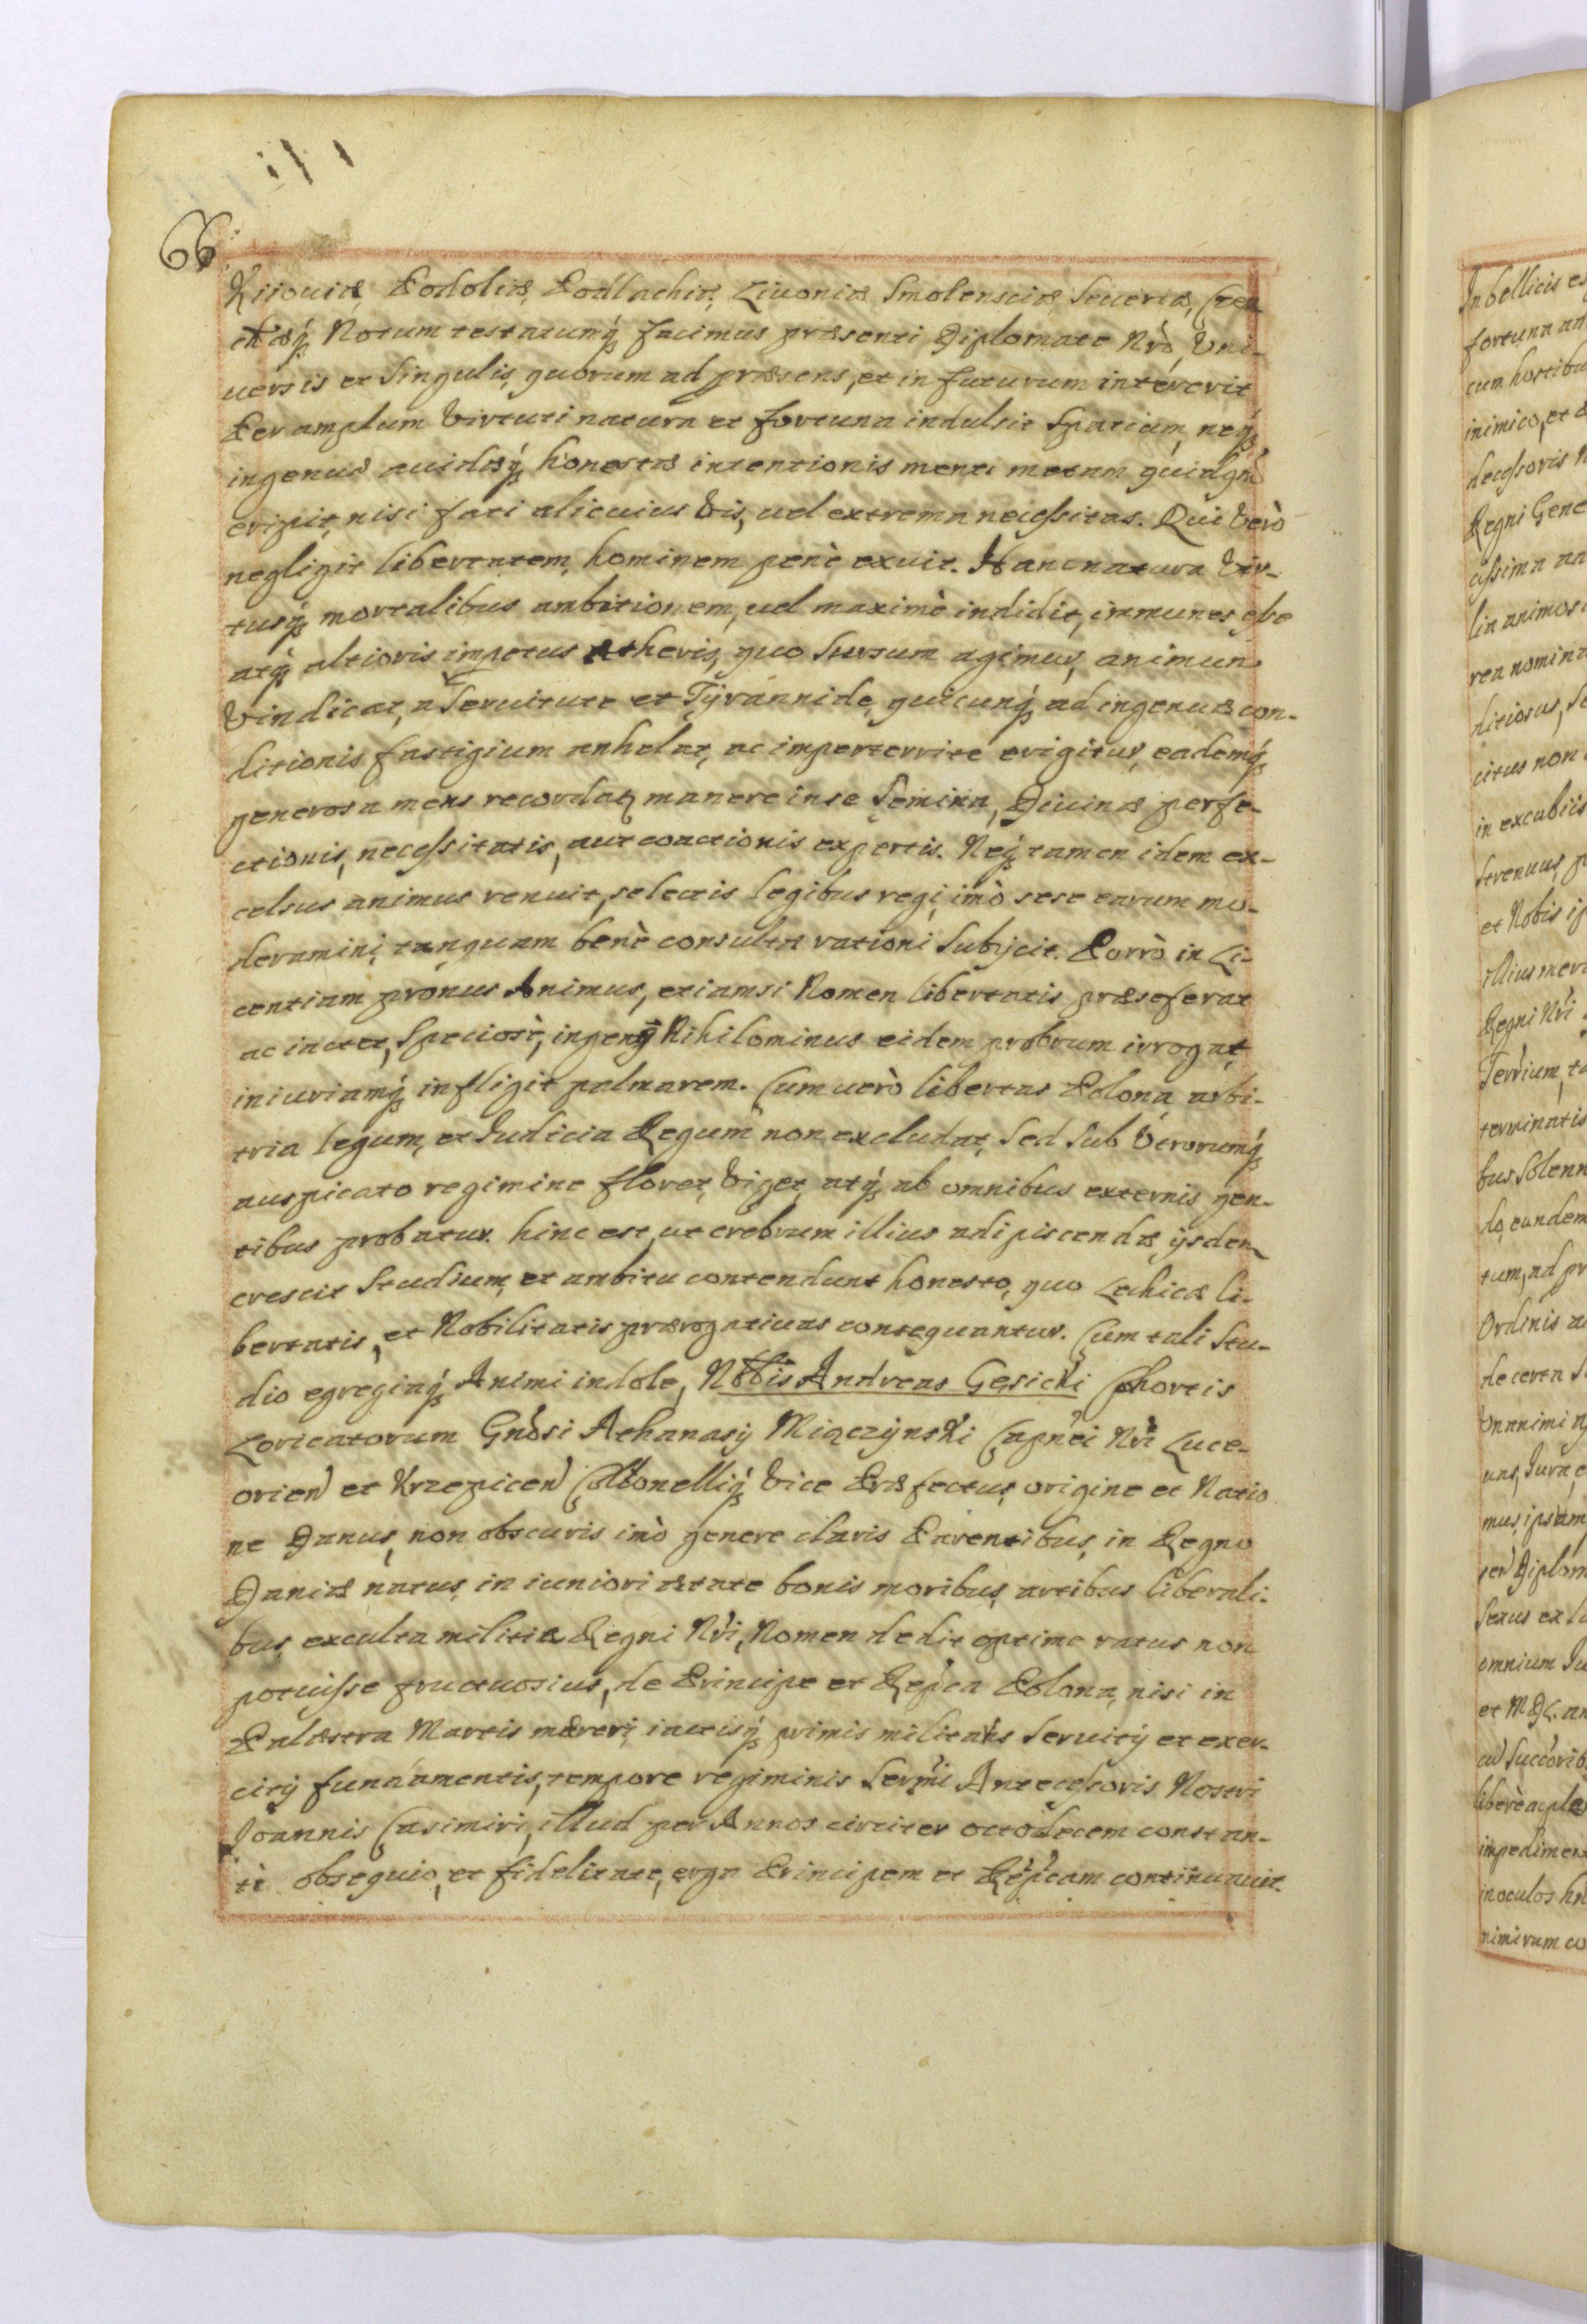 66.
Kiiouiæ Podoliæ, Podlachiæ, Liuoniæ Smolensciæ Seueriæ, Czer
chæq; Notum testatumq; facimus præsenti Diplomate Nrô, Vni-
uersis et Singulis, quorum ad præsens, et in futurum intererit
Per amplum Virtuti natura et fortuna indulsit Spatium, neq;
ingenuæ auidæq; honestæ intentionis menti metam
eripit, nisi fati alicuius Vis, uel extrema necessitas. Qui Verò
negligit libertatem, hominem penè exuit. Hanc natura Vir-
tusq; mortalibus ambitionem, uel maximè indidit, immunes esse
atq; altioris impetus ætheris, quo Sursum agimur, animum
Vindicat, a Seruitute et Tÿrannide, quicunq; ad ingenuæ con-
ditionis fastigium anhelat, ac imperterritè erigitur, eademq;
generosa mens recordat manere in se Semina, Diuinæ perfe-
ctionis, necessitatis, aut coactionis expertis. Neq; tamen idem ex-
celsus animus renuit, selectis legibus regi, imò sese earum mo-
deramini, tanquam benè consultæ rationi Subÿcit. Porrò in Li-
centiam pronus Animus, etiamsi Nomen libertatis præseferat
ac iactet, Speciosè, Nihilominus eidem probrum irrogat,
iniuriamq; infligit palmarem. Cum uerò libertas Polona arbi-
tria legum, et Iudicia Regum non excludat, Sed Sub Vtrorumq;
auspicato regimine floret, Viget, atq; ab omnibus externis gen-
tibus probatur. hinc est, ut crebrum illius adipiscendæ ÿsdem
crescit Studium, et ambitu contendunt honesto, quo Lechicæ li-
bertatis, et Nobilitatis prærogatiuas consequantur. Cum tali Stu-
dio egregiaq; Animi indole, Nobis Andreas Gęsicki Chortis
Loricatorum Gnosi Athanasÿ Miączÿnski Capnei Nri Luce-
orien et Krzepicen Collonelliq; Vice Præfectus, origine et Natio
ne Danus, non obscuris imò genere claris Parentibus, in Regno
Daniæ natus, in iuniori ætate bonis moribus, artibus liberali-
bus, exculta militiæ Regni Nri, Nomen dedit optime ratus non
potuisse fructuosius, de Principe et Repca Polona, nisi in
Palæstra Martis mereri, iactisq; primis militaris Seruitÿ et exer-
citÿ fundamentis, tempore regiminis Sermi Antecessoris Nostri
Ioannis Casimiri, illud per Annos circiter octodecem constan-
ti obsequio, et fidelitate, erga Principem et Repcam continuauit.
In bellicis
fortuna
cum hostibu
inimico, et
decessoris
Regni Gene
lia animos
rea nomin
ditiosus,
citus non
in excubiis
Strenuus,
et Nobis
illius mer
Regni Nri
terminatis
bus Solenn
do, eundem
tum, ad pr
Ordinis
de certa
Vnanimi
uas, Iura,
mus, ipsum
sen Diplom
Sexus ex
omnium Iu
et MDL.
libere
impedimen
in oculos
nimirum co